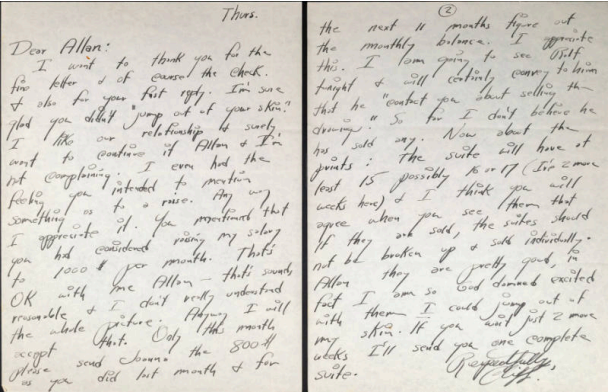 Thurs.
Dear Allan:
I want to thank you for the
fine letter & of course the check.
& also for your fast reply. I'm sure
glad you didn't "jump out of your skin."
I like our relationship & surely
want to continue it Allan & I'm
not complaining. I even had the
feeling you intended to mention
something as to a raise. Any way
I appreciate it. You mentioned that
you had considered raising my salary
to 1000 $ per month. That's
OK with me Allan — that's sounds
reasonable & I don't really understand
the whole picture. Anyway I will
accept that. Only this month
please send Joanna the 800
as you did last month & for
②
the next 11 months figure out
the monthly balance. I appreciate
this. I am going to see Rolf
tonight & will certainly convey to him
that he "contact you about selling the
drawing." So far I don't believe he
has sold any. Now about the
prints: The suite will have at
least 15 possibly 16 or 17 (I'm 2 more
weeks here) & I think you will
agree when you see them that
if they are sold, the suites should
not be broken up & sold individually.
Allan they are pretty good, in
fact I am so God damned excited
with them I could jump out of
my skin. If you wait just 2 more
weeks I'll send you one complete
suite. Respectfully,